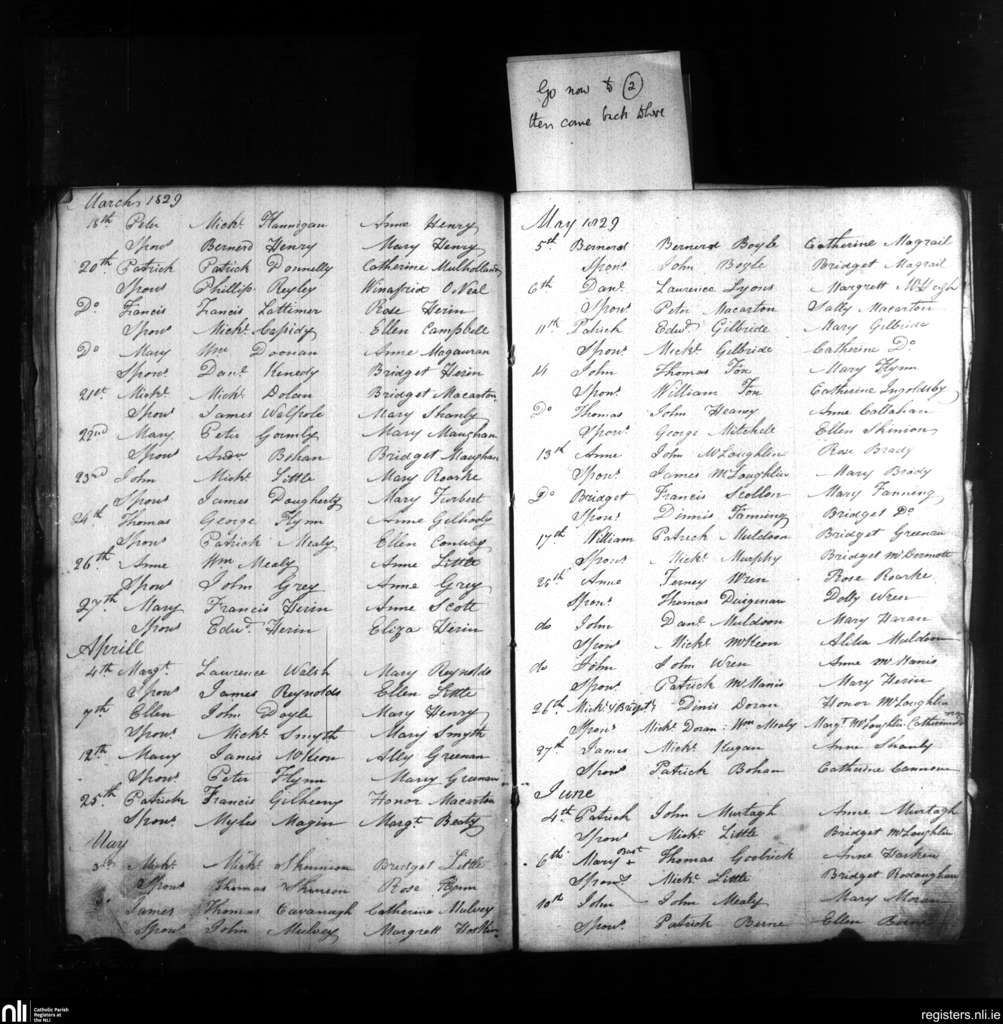 Go now to 2
then come back to here
March 1829
18th Peter Mickl Flannigan Anne Henry
Spons Bernerd Henry Mary Henry
20th Patrick Patrick Donnelly Catherine Mulholland
Spons Phillip Reyley Winafrid O Neil
Do Francis Francis Lattimer Rose Herin
Spons Mickl Cassidy Ellen Campbell
Do Mary Wm Doonan Anne Magauran
Spons Danl Kenedy Bridget Herin
21st Mickl Mickl Dolan Bridget Macarton
Spons James Walpole Mary Shanly
22nd Mary Peter Gormly Mary Maughan
Spons Andw Bohan Bridget Maughan
23rd John Mickl Little Mary Roarke
Spons James Daugherty Mary Furbert
24th Thomas George Flynn Anne Gelhooly
Spons Patrick Mealy Ellen Conway
26th Anne Wm Mealy Anne Little
Spons John Grey Anne Grey
27th Mary Francis Herin Anne Scott
Spons Edwd Herin Eliza Herin
Aprill
4th Margt Lawrence Walsh Mary Reynolds
Spons James Reynolds Ellen Little
7th Ellen John Doyle Mary Henry
Spons Mickl Smyth Mary Smyth
12th Mary James McKeon Ally Greenan
Spons Peter Flynn Mary Greenan
25th Patrick Francis Gilheeny Honor Macarton
Spons Myles Magin Margt Beaty
May
3rd Mickl Mickl Shennion Bridget Little
Spons Thomas Rose Flynn
James Thomas Cavanagh Catherine Mulvey
Spons John Mulvey Margrett
May 1829
5th Bernerd Bernerd Boyle Catherine Magrail
Spons John Boyle Bridget Magrail
6th Danl Lawrence Lyons Margrett McVeigh
Spons Peter Macarton Sally Macarton
11th Patrick Edwd Gilbride Mary Gilbride
Spons Mickl Gilbride Catherine Do
14 John Thomas Fox Mary Flynn
Spons William Fox Catherine Ingoldsby
Do Thomas John Heavy Anne Callahan
Spons George Mitchell Ellen Shinion
13th Anne John McLoughlin Rose Brady
Spons James McLoughlin Mary Brady
Do Bridget Francis Scollon Mary Fanning
Spons Dinnis Fanning Bridget Do
17th William Patrick Muldoon Bridget Greenan
Spons Mickl Murphy Bridget McDermott
25th Anne Terney Wren Rose Roarke
Spons Thomas Duigenan Dolly Wren
do John Danl Muldoon Mary Haran
Spons Mickl McKeon Muldoon
do John John Wren Anne McManis
Spons Patrick McManis Mary Herin
26th Mickl & Bridgt Dinis Doran Honor McLoughlin
Spons Mickl Doran : Wm Mealy Margt McLoughlin : Catherine
27th James Mickl Keegan Anne Shanly
Spons Patrick Bohan Catherine Cannon
June
4th Patrick John Murtagh Anne Murtagh
Spons Mickl Little Bridget McLoughlin
6th Mary Thomas Goolrick Anne Harken
Spons Mickl Little Bridget Rodaughan
10th John John Mealy Mary Moran
Spons Patrick Berne Ellen Berne
nli Catholic Parish
Registers at
the NLI
registers.nli.ie